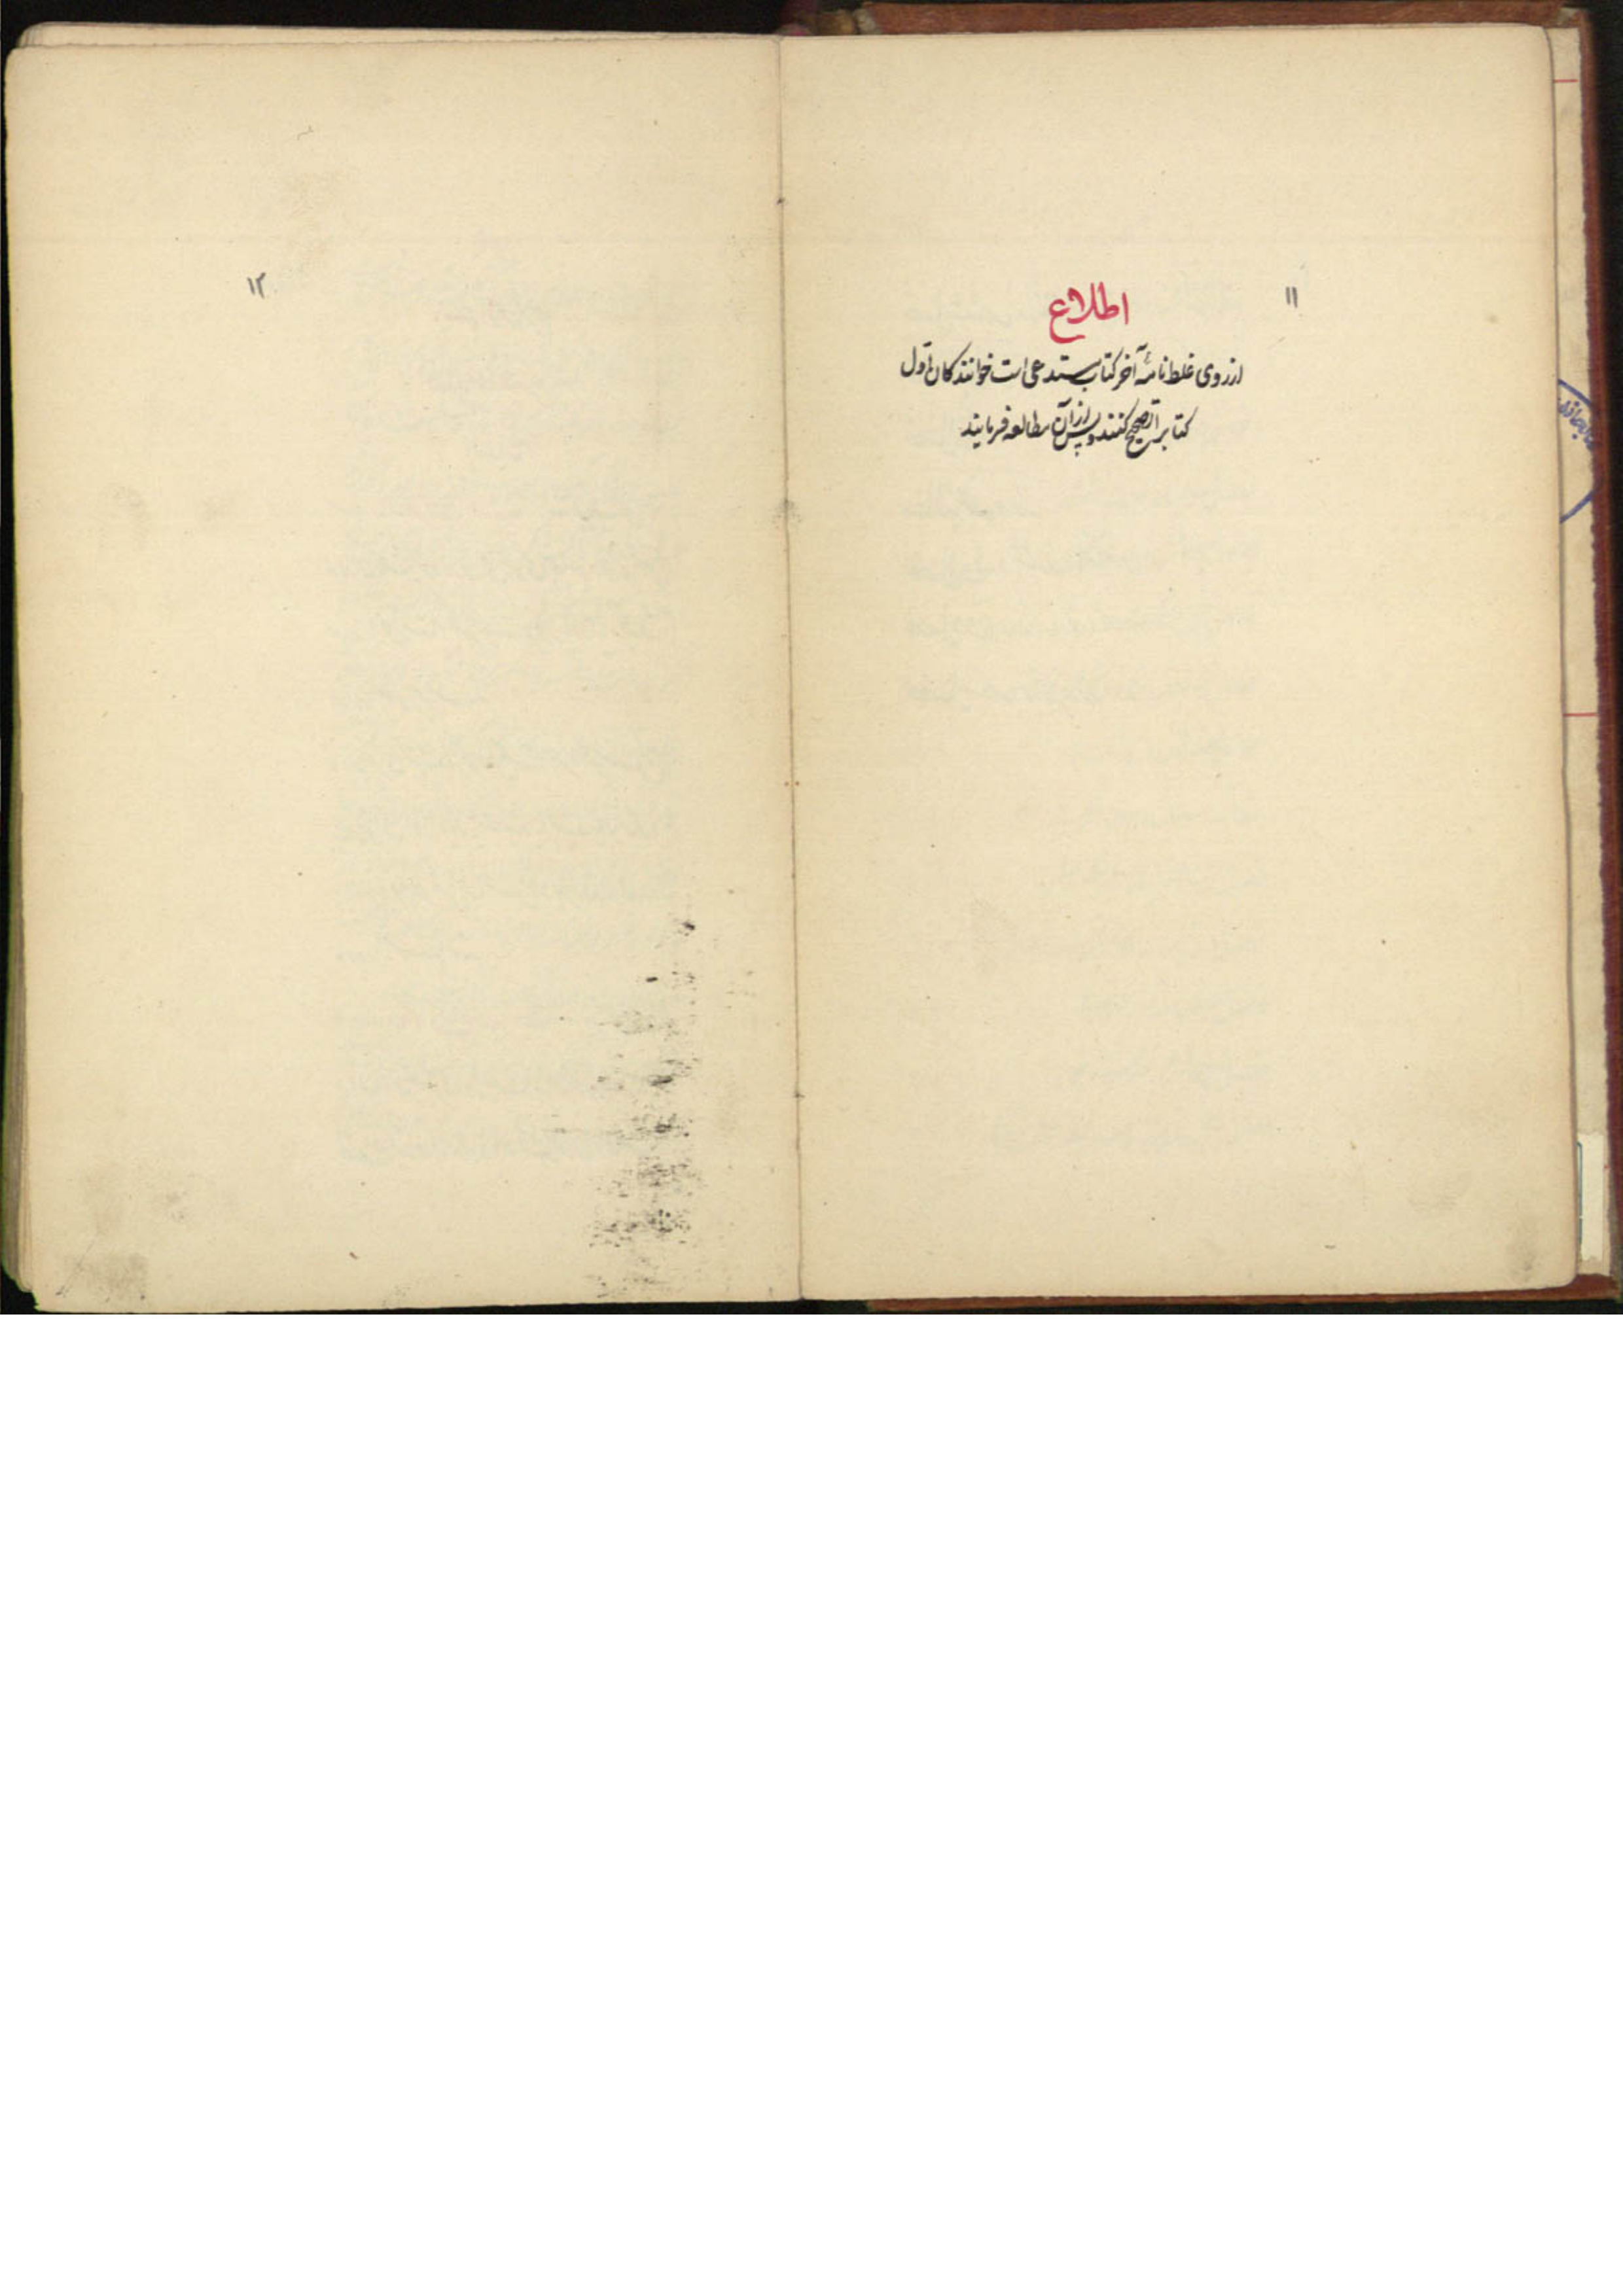 ۱۱
اطلاع
از روی غلط نامهٔ آخر کتاب مستدعی است خوانندکان اول
کتابرا تصحیح کنند و پس از آن مطالعه فرمایند
۱۲